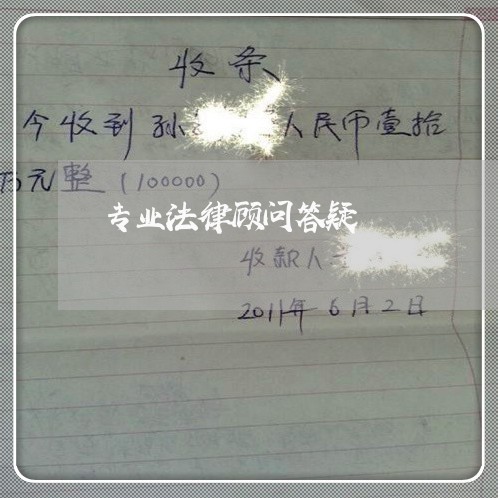 收条
今收到孙 人民币壹拾
万元整(100000)
专业法律顾问答疑
收款人:
2011年6月2日